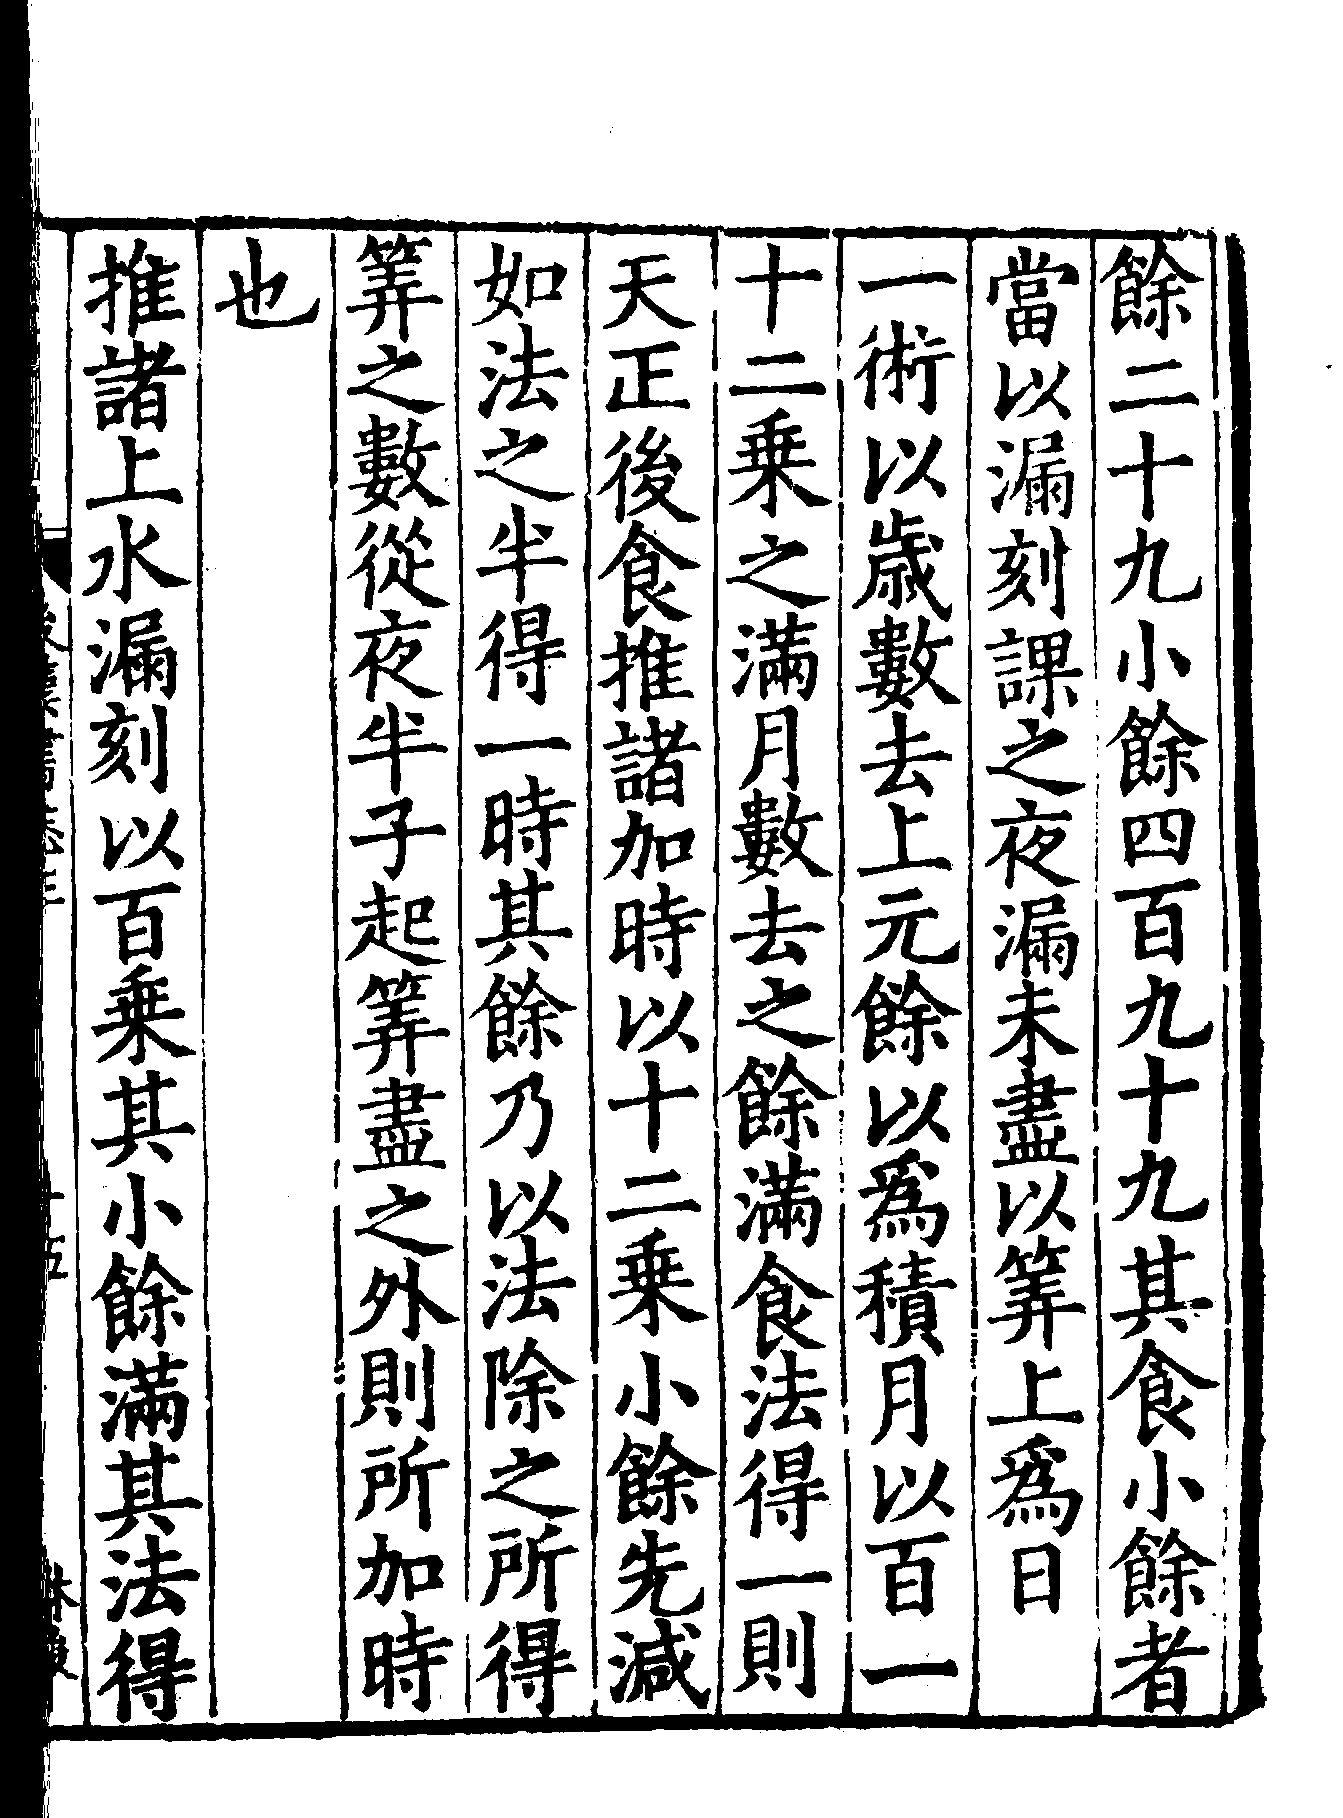 餘二十九小餘四百九十九其食小餘者
當以漏刻課之夜漏未盡以筭上爲日
一術以歲數去上元餘以爲積月以百一
十二乗之滿月數去之餘滿食法得一則
天正後食推諸加時以十二乗小餘先減
如法之半得一時其餘乃以法除之所得
筭之數從夜半子起筭盡之外則所加時
也
推諸上水漏刻以百乗其小餘滿其法得